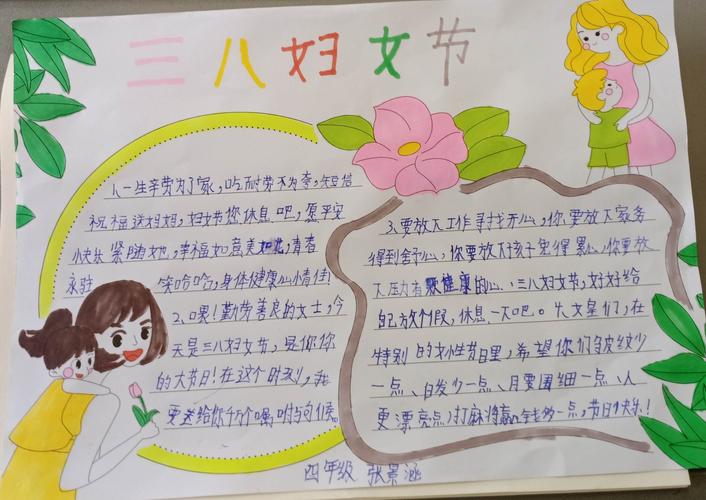 三八妇女节
1、一生辛劳为了家,吃耐劳不为夸,短信
祝福送妈妈,妇女节您休息吧,愿平安
小快乐紧随她,幸福如意美如花,青春
永驻 笑哈哈,身体健康心情佳!
2、嘿!勤劳善良的女士,今
天是三八妇女节,是你你
的大节日!在这个时刻,我
更送给你千万个嘱咐与问候。
3.要放下工作寻找开心,你要放下家务
得到舒心,你要放下孩子免得累心,你要放
下压力有颗健康的心、三八妇女节,好好给
自己放个假,休息一下吧。女皇们,在
特别的女性节日里,希望你们皱纹少
一点、白发少一点、月要围细一点、人
更漂亮点,打麻将赢金钱多一点,节日快乐!
四年级 张景涵